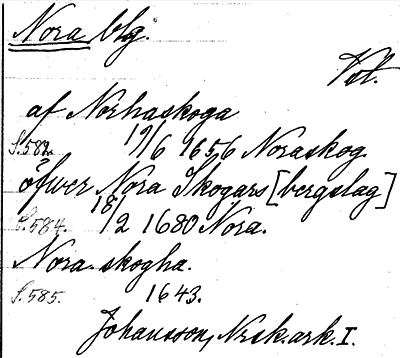 Nora blg.
Vst.
af Norhaskoga
S. 582. 19/6 1656 Noraskog
öfwer Nora Skogars [bergslag]
S. 584. 18/2 1680 Nora.
Nora skogha.
S. 585. 1643.
Johansson, Norsk. ark. I.